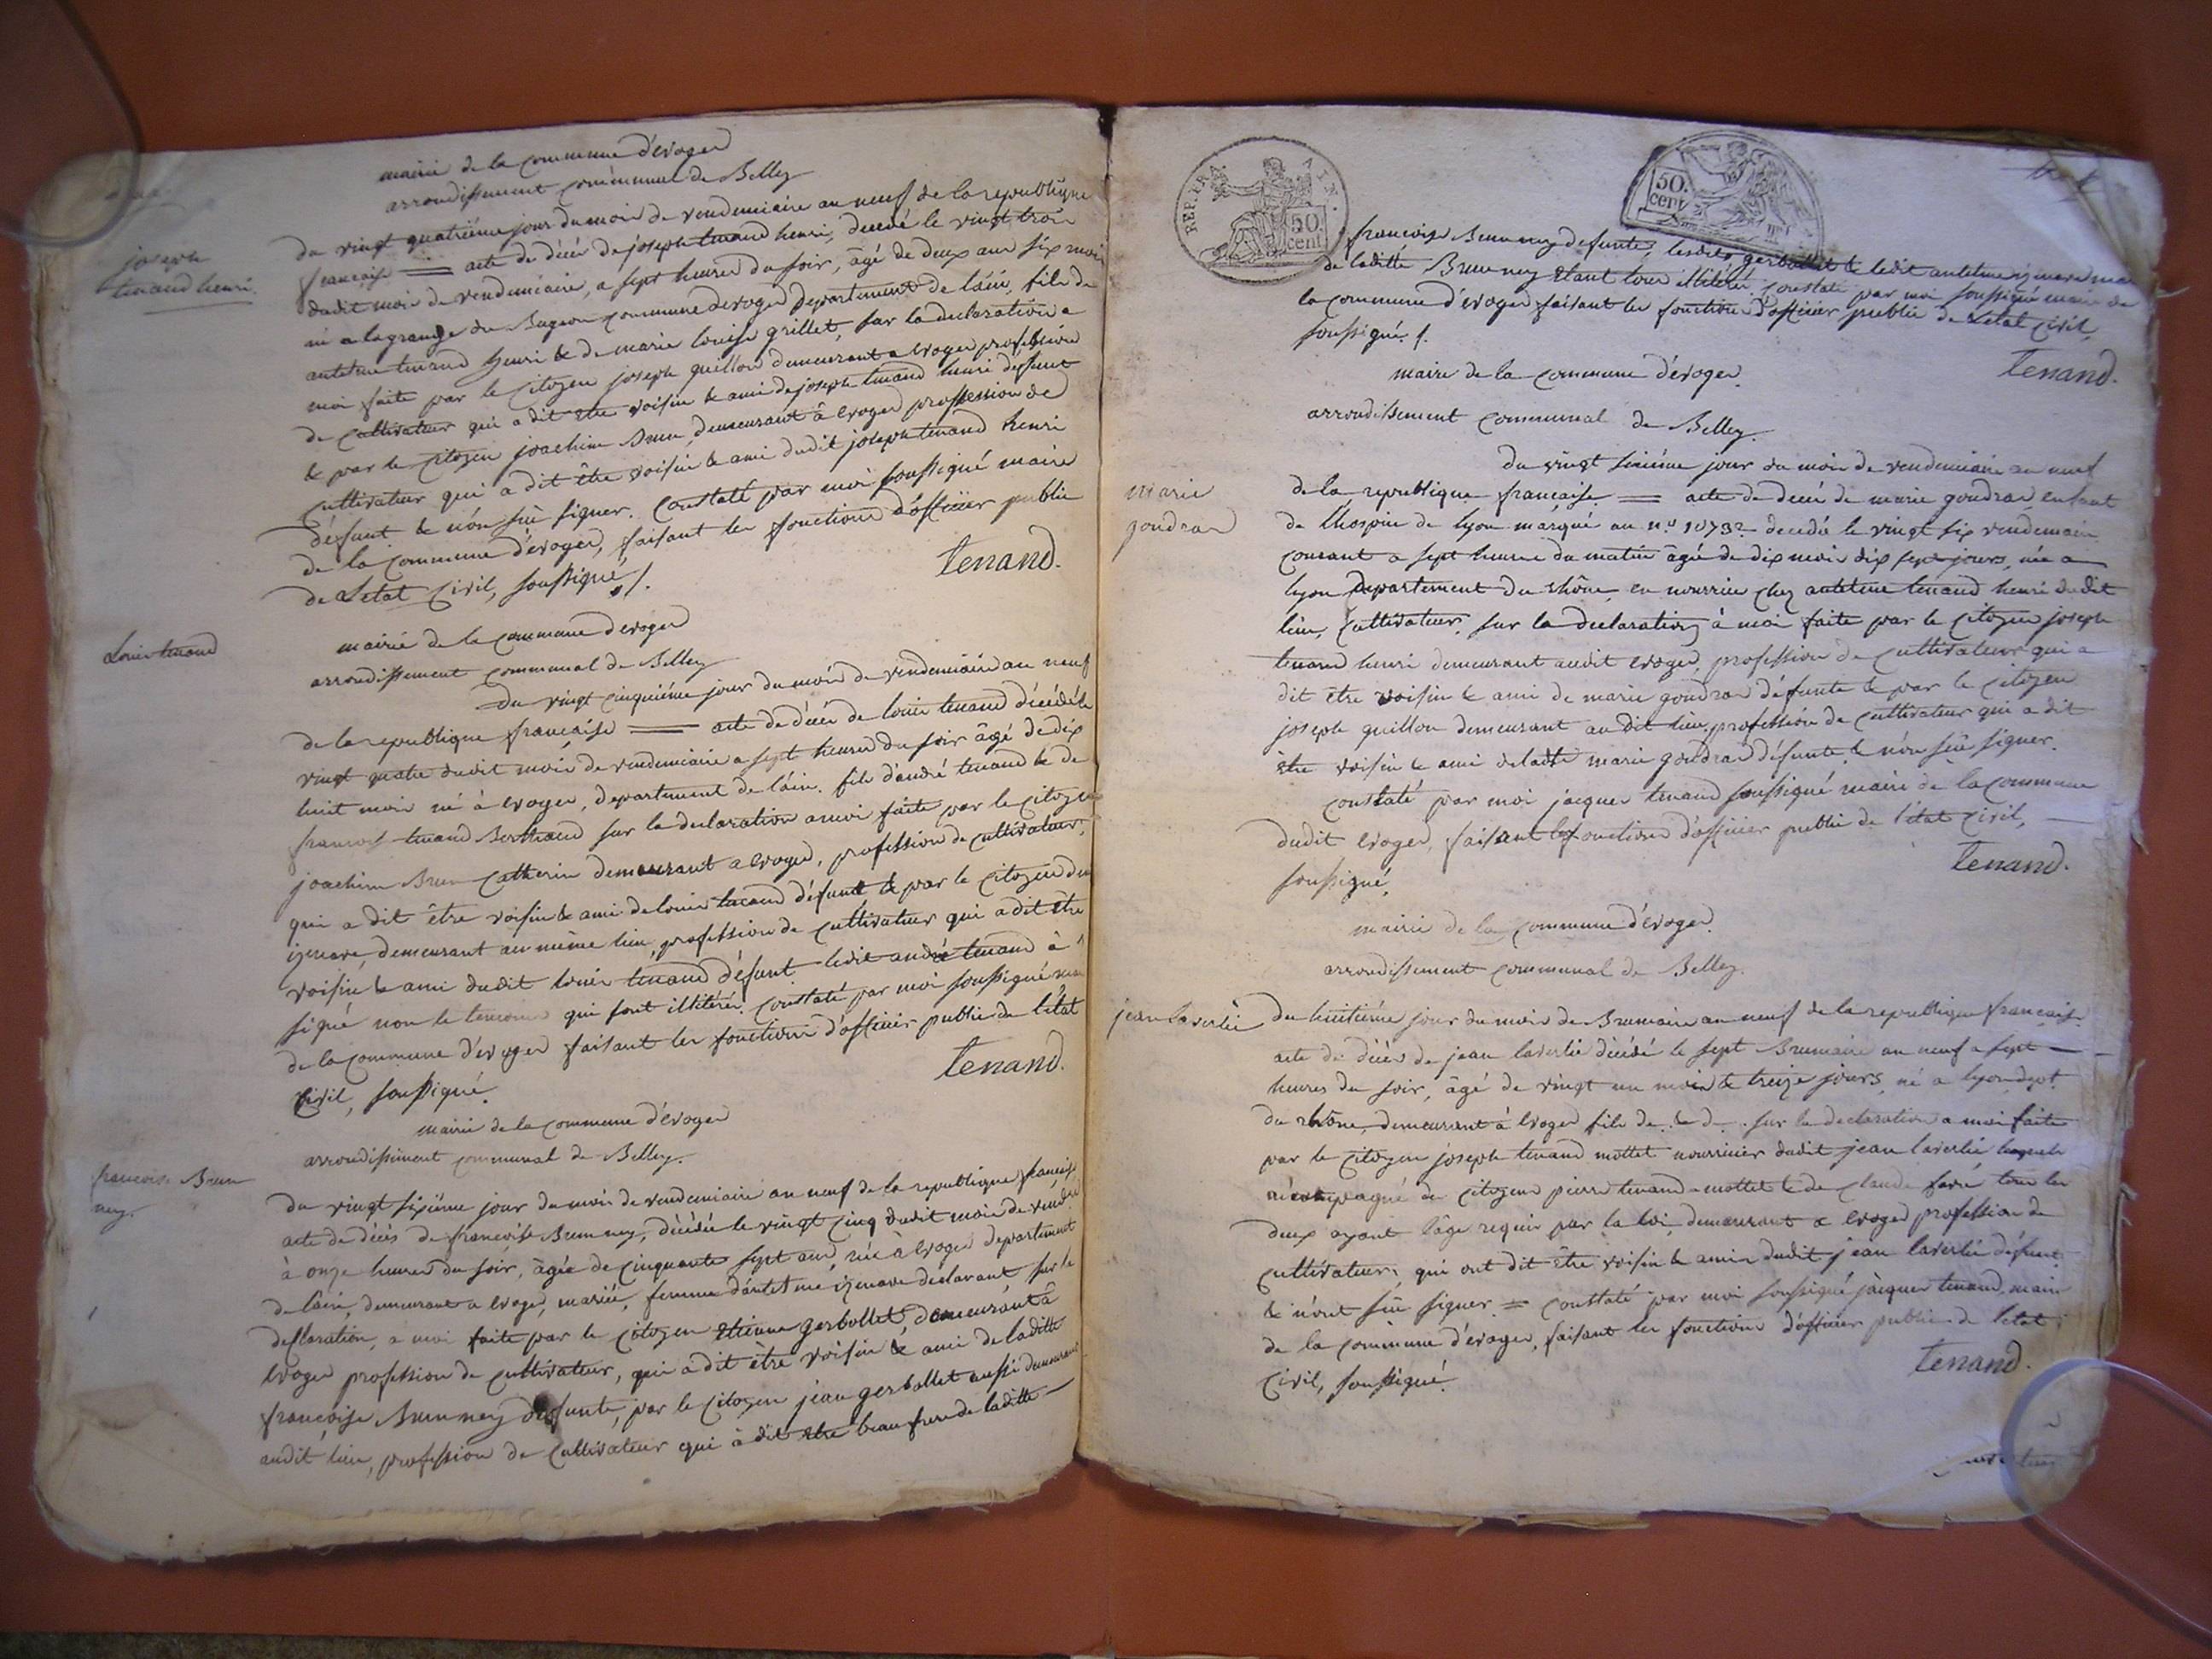 mairie de la commune d'evoges
arrondissement communal de Belley
joseph
tenand henri.
du vingt quatriéme jour du mois de vendemiaire an neuf de la republique
francaise = acte de décés de joseph tenand henri, decedé le vingt trois
dudit mois de vendemiaire, a sept heures du soir, âgé de deux ans six mois
né a lagrange du commune devoges departement de láin, fils de
antelme tenand henri & de marie louise grillet, sur la declaration a
moi faite par le citoyen joseph guillon demeurant a evoges profession
de cultivateur qui a dit etre voisin & ami de joseph tenand henri defunt
& par le citoyen joachim Brun, demeurant à evoges profession de
cultivateur qui a dit être voisin & ami dudit joseph tenand henri
défunt & n'ón sû signer. Constaté par moi soussigné maire
de la commune d'evoges, faisant les fonctions d'officier public
de Letat Civil, soussigné /.
tenand.
Louis tenand
mairie de la commune d'evoges
arrondissement communal de Belley
du vingt cinquiéme jour du mois de vendemiaire an neuf
de la republique francaise = acte de décés de louis tenand décédé le
vingt quatre dudit mois de vendemiaire a sept heures du soir âgé de dix
huit mois né à evoges, departement de láin. fils d'andré tenand & de
francois tenand Berthand sur la declaration a moi faite par le citoyen
joachim Brun Catherin demeurant a evoges, profession de cultivateur,
qui a dit être voisin & ami de louis tenand défunt & par le citoyen
izenave, demeurant au même lieu, profession de cultivateur qui a dit être
voisin & ami dudit louis tenand défunt ledit andré tenand à
signé non le temoins qui sont illitérés. Constaté par moi soussigné
de la commune d'evoges faisant les fonctions d'officier public de l'état
Civil, soussigné.
tenand.
mairie de la commune d'évoges
arrondissement communal de Belley.
francoise Brun
ney.
du vingt sixiéme jour du mois de vendemiaire an neuf de la republique francaise
acte de décés de francoise Brunney, décédée le vingt cinq dudit mois de
à onze heures du soir, âgée de cinquante sept ans, née à evoges departement
de láin, demeurant a evoges, mariée, femme d'antelme izenave declarant sur la
desclaration, a moi faite par le citoyen etienne gerbollet, demeurant à
evoges profession de cultivateur, qui a dit être voisin & ami de laditte
francoise Brunney défunte, par le citoyen jean gerbollet aussi demeurant
audit lieu, profession de cultivateur qui à dit etre beau frere de laditte
REP. FRA.
50
cent
50.
cent
francoise Brunney defunte, lesdits gerbollet & ledit antelme izenave mari
de laditte Brunney etant tous illitérés, constaté par moi soussigné maire de
la commune d'evoges faisant les fonctions d'officier public de Létat Civil,
soussigné /.
tenand.
maire de la commune d'évoges.
arrondissement communal de Belley.
marie
goudran
du vingt sixiéme jour du mois de vendemiaire an neuf
de la republique francaise = acte de decés de marie goudran, enfant
de l'hospice de lyon marqué au n.º 10732 decedée le vingt six vendemiaire
courant a sept heures du matin âgé de dix mois dix sept jours, née a
lyon departement du rhône, en nourrice chez antelme tenand henri dudit
lieu, cultivateur, sur la declaration à moi faite par le citoyen joseph
tenand henri demeurant audit evoges, profession de cultivateur qui a
dit être voisin & ami de marie goudran défunte & par le citoyen
joseph guillon demeurant audit lieu, profession de cultivateur qui a dit
être voisin & ami de laditte marie goudran défunte, & n'ón sû signer.
constaté par moi jacques tenand soussigné maire de la commune
dudit evoges, faisant les fonctions d'officier public de l'état civil,
soussigné,
tenand.
mairie de la commune d'évoges.
arrondissement communal de Belley.
jean laverlié
du huitiéme jour du mois de Brumaire an neuf de la republique francaise.
acte de décés de jean laverlié décédé le sept Brumaire an neuf a sept
heures du soir, âgé de vingt un mois & treize jours, né a lyon dept
du rhône, demeurant à evoges fils de . & d . sur la declaration a moi faite
par le citoyen joseph tenand mottet nourricier dudit jean laverlié lequel
accompagné du citoyens pierre tenand-mottet & de claude favre tous les
deux ayant lâge requis par la loi, demeurant a evoges profession de
cultivateurs, qui ont dit être voisin & amis dudit jean laverlié défunt
& n'ónt sû signer = constaté par moi soussigné jacques tenand, maire
de la commune d'evoges, faisant les fonctions d'officier public de l'état
civil, soussigné.
tenand.